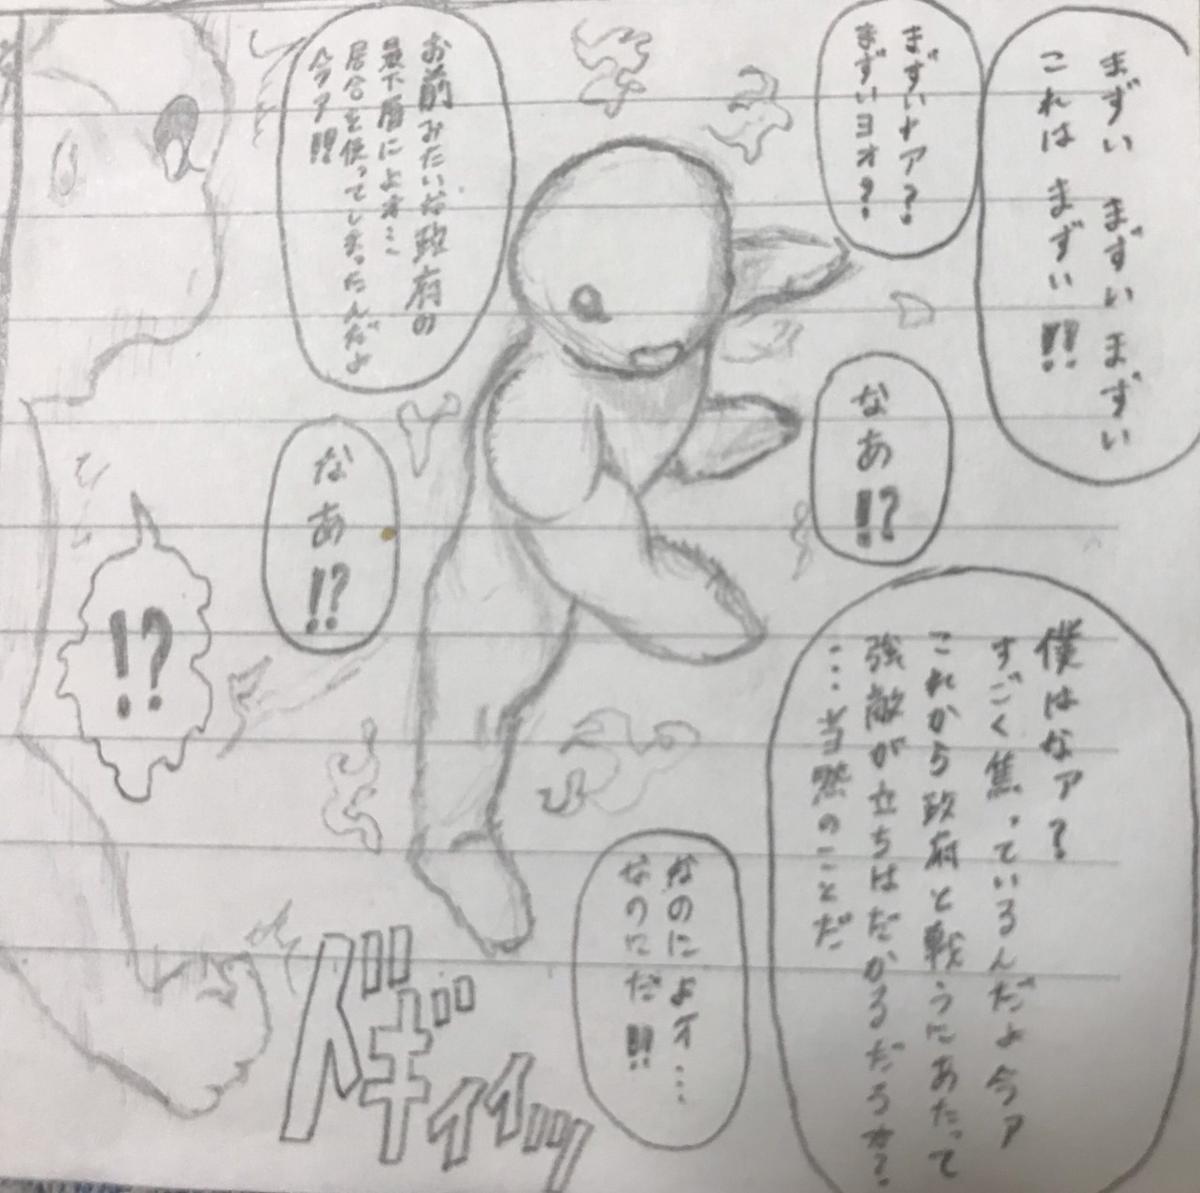 まずい まずい まずい
これは まずい!!
まずいナァ?
まずいヨォ?
なあ!?
僕はなァ?
すごく焦っているんだよ今ァ
これから政府と戦うにあたって
強敵が立ちはだかるだろォ?
…当然のことだ
なのによォ…
なのにだ!!
お前みたいな政府の
最下層によォ…
居合を使ってしまったんだよ
今ァ!!
なあ!?
!?
ドギィィッッ